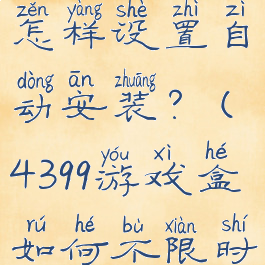 zěn yàng shè zhì zì
怎样设置自
dòng ān zhuāng
动安装？（
yóu xì hé
4399游戏盒
rú hé bù xiàn shí
如何不限时